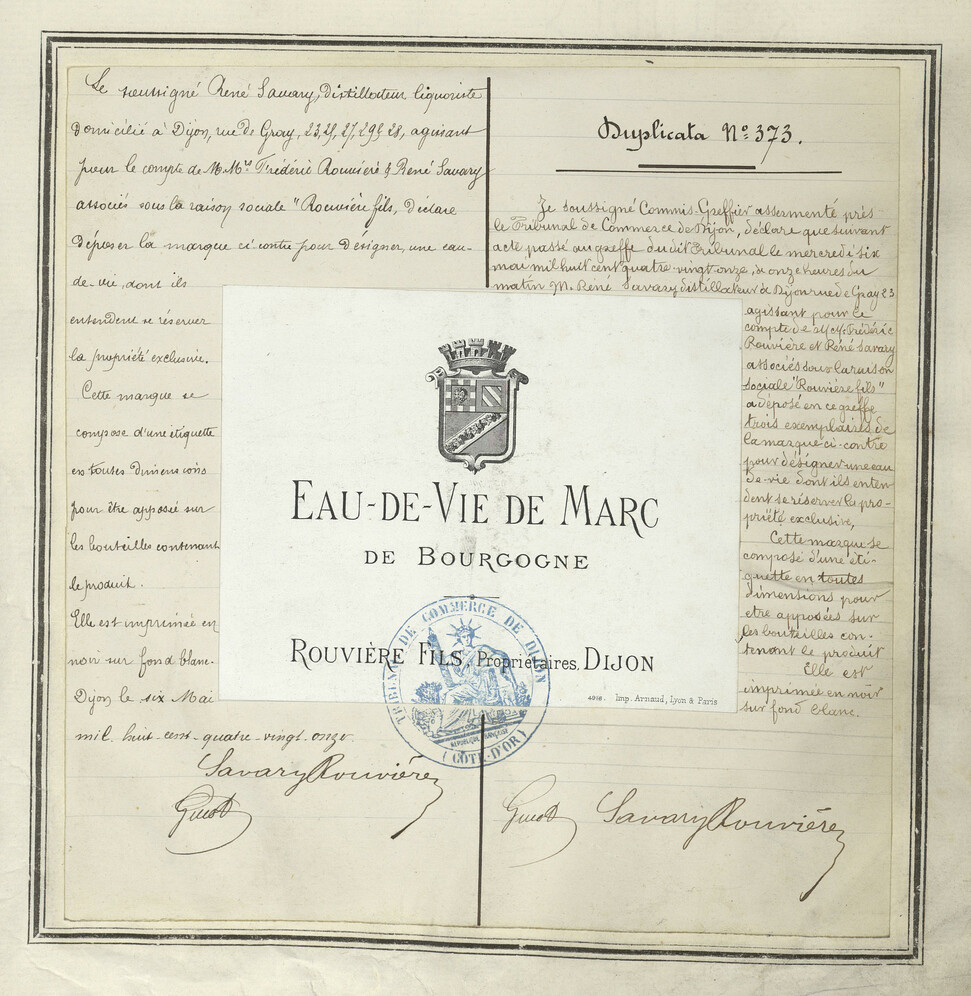 Le soussigné René Savary, distillateur liquoriste
domicilié à Dijon, rue de Gray, 23, 25, 27, 29 & 28, agissant
pour le compte de M.Mrs Frédéric Rouvière & René Savary
associés sous la raison sociale "Rouvière fils, déclare
déposer la marque ci contre pour désigner, une eau-
de-vie, dont ils
entendent se réserver
la propriété exclusive.
Cette marque se
compose d'une étiquette
en toutes dimensions
pour être apposé sur
les bouteilles contenant
le produit.
Elle est imprimée en
noir sur fond blanc.
Dijon le six Mai
mil huit-cent-quatre-vingt-onze.
Savary Rouvière
Duplicata No 373.
Je soussigné Commis-Greffier assermenté près
le Tribunal de Commerce de Dijon, déclare que suivant
acte passé au greffe du dit Tribunal le mercredi six
mai mil huit cent quatre-vingt onze, à onze heures du
matin M. René Savary distillateur à Dijon rue de Gray 23
agissant pour le
compte de M.M. Frédéric
Rouvière et René Savary
associés sous la raison
sociale "Rouvière fils"
a déposé en ce greffe
trois exemplaires de
la marque ci-contre
pour désigner une eau
de-vie dont ils enten
dent se réserver la pro-
priété exclusive,
Cette marque se
compose d'une éti-
quette en toutes
dimensions pour
etre apposées sur
les bouteilles con-
tenant le produit
Elle est
imprimée en noir
sur fond blanc.
Savary Rouvière
EAU-DE-VIE DE MARC
DE BOURGOGNE
ROUVIÈRE FILS Propriétaires, DIJON
4998. Imp. Arnaud, Lyon & Paris
TRIBUNAL DE COMMERCE DE DIJON
REPUBLIQUE FRANÇAISE
(CÔTE-D'OR)